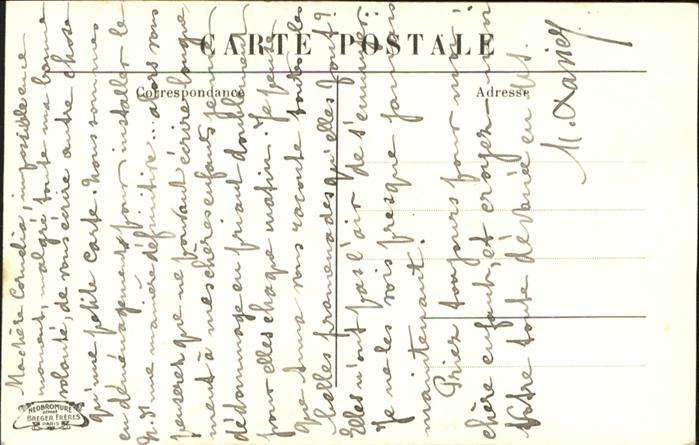 CARTE POSTALE
Correspondance
Adresse
Ma chère Cornelia, impossible en ce
moment, malgré toute ma bonne
volonté, de vous écrire autre chose
qu'une petite carte. Nous sommes
en déménagement pour installer le
d'une manière définitive... alors vous
penserez que ne pouvant écrire longue
ment à mes chères enfants, je me
dédommage en priant doublement
pour elles chaque matin. Je pense
que Irma vous raconte toutes les
belles promenades qu'elles font?
Elles n'ont pas l'air de s'ennuyer!
Je ne les vois presque jamais
maintenant.
Priez toujours pour moi,
chère enfant, et croyez-moi
Votre toute dévouée en
M. Xavier
NEOBROMURE
BREGER FRÈRES
PARIS